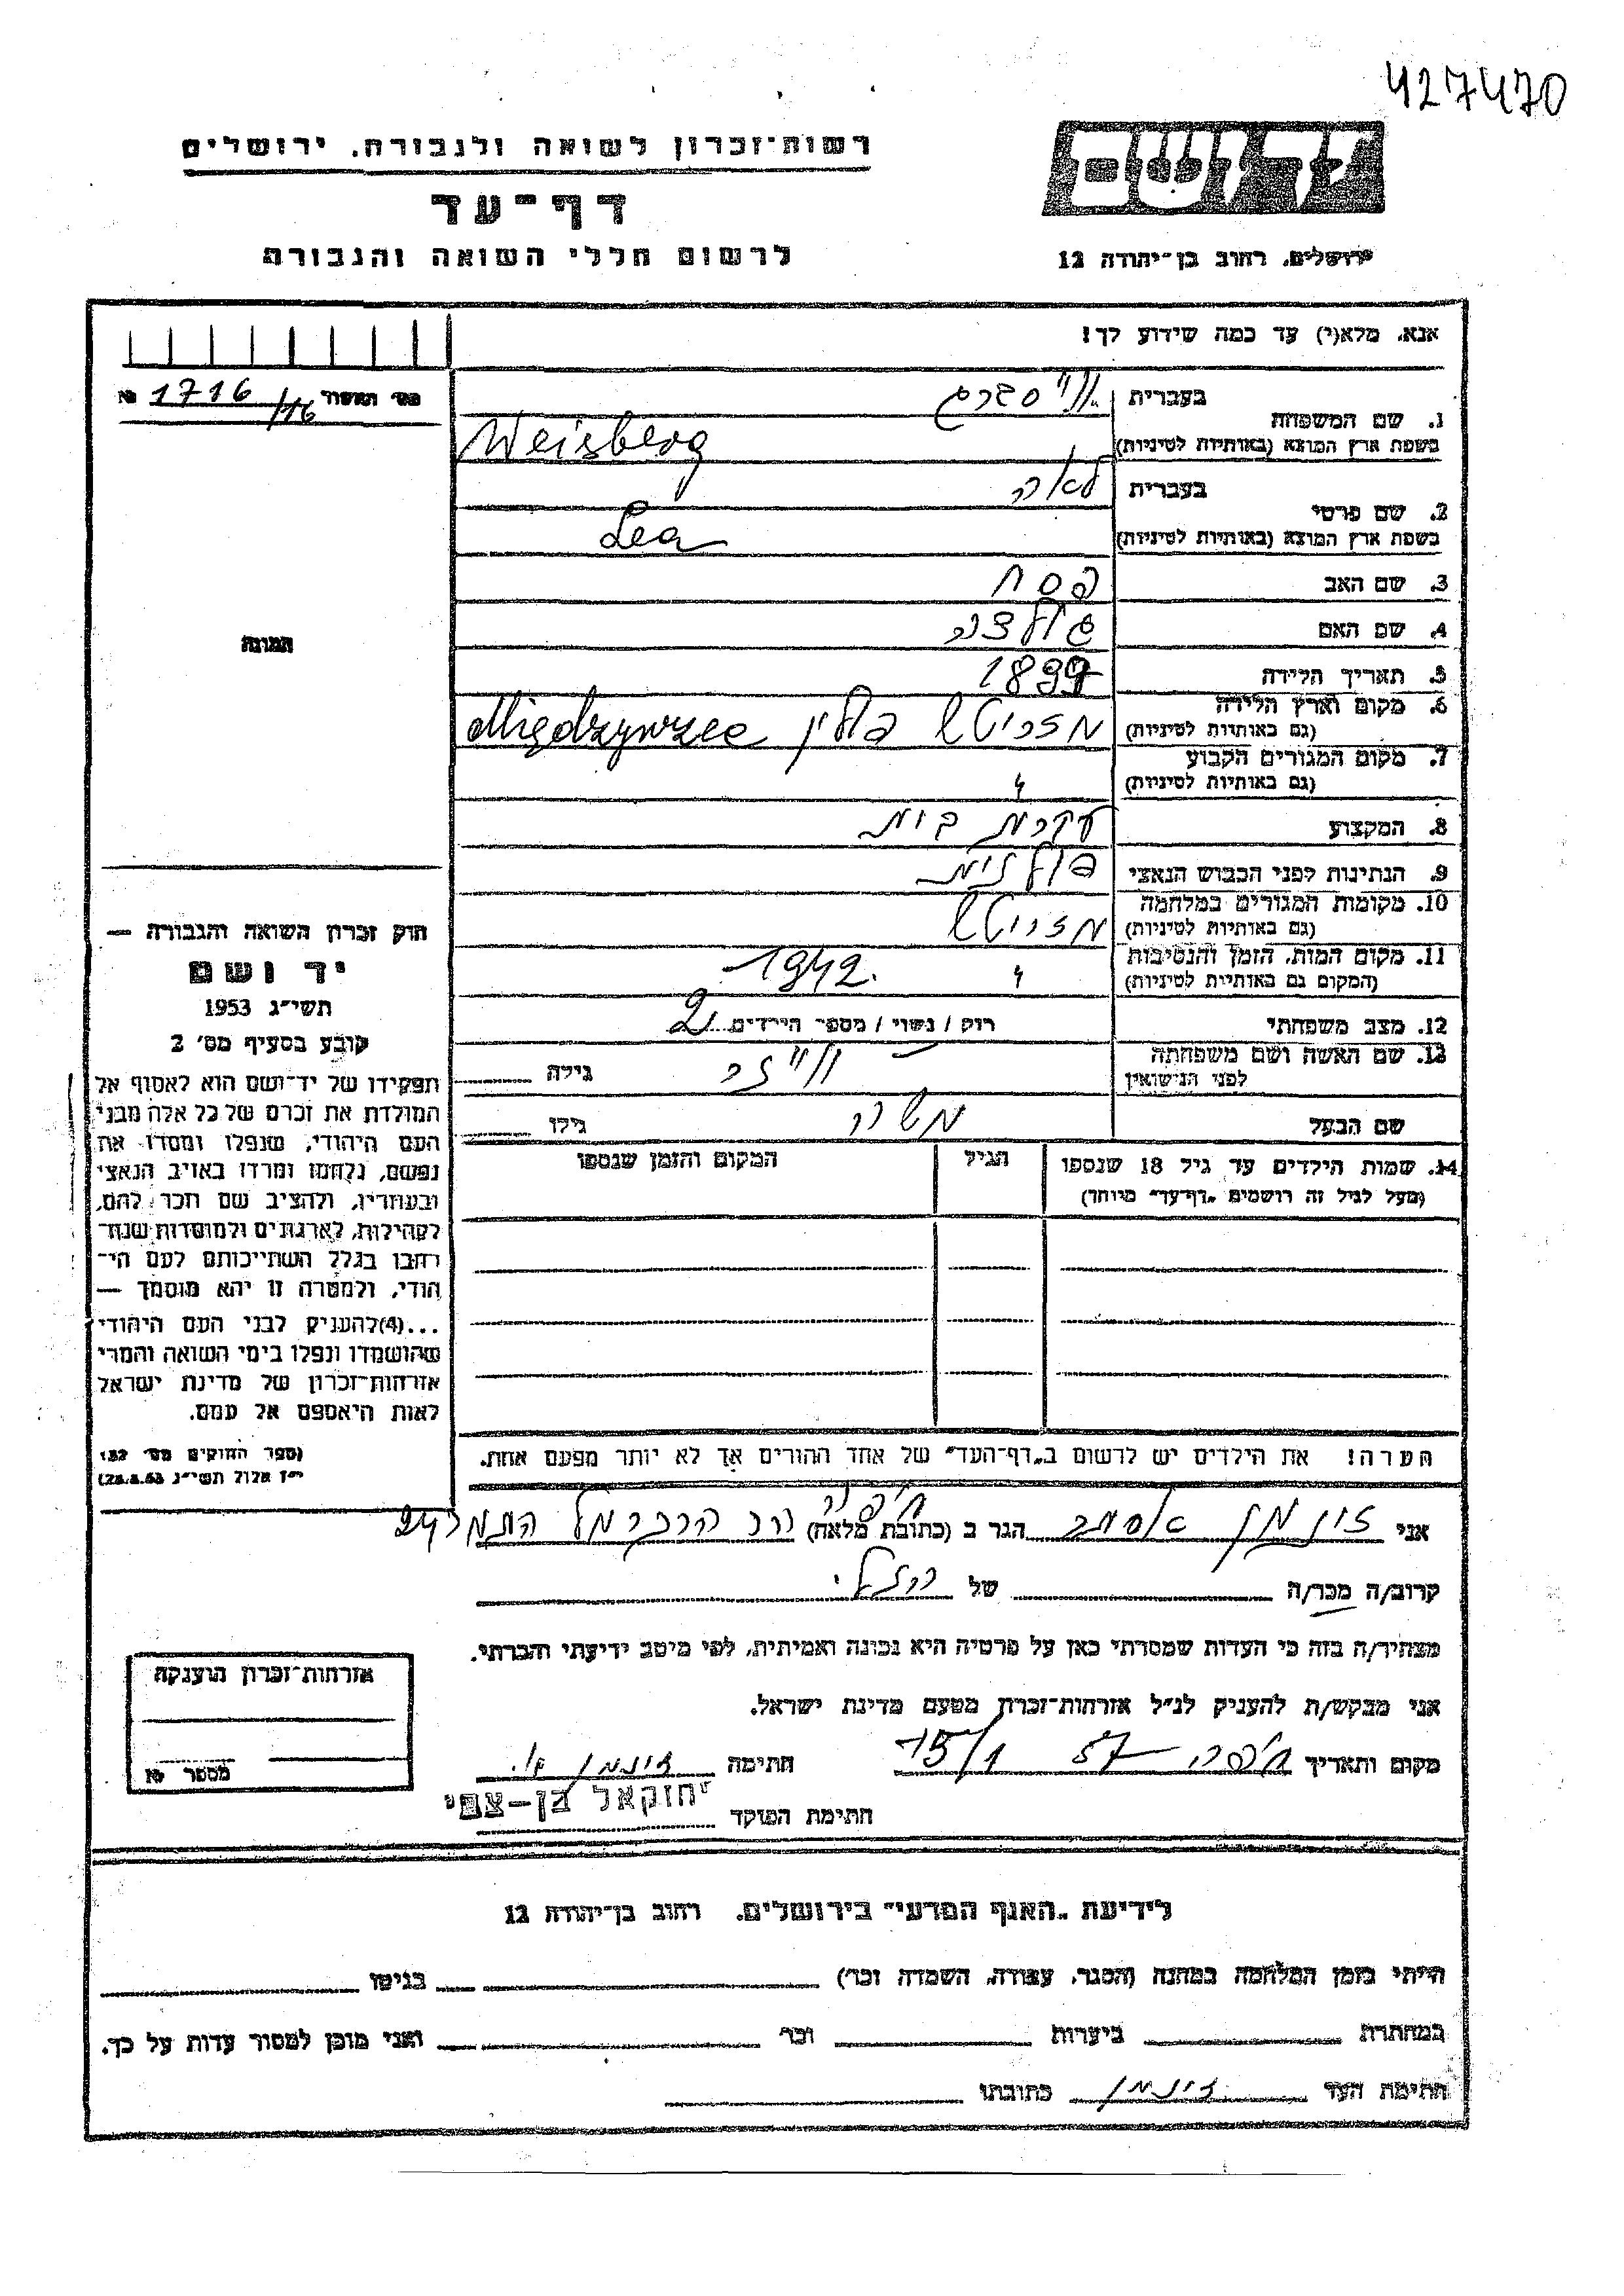 427470
ידושם
רשות־זכרון לשואה ולגבורה, ירושלים
דף־עד
לרשום חללי השואה והגבורה
ירושלים, רחוב בן־יהודה 12
אנא, מלא(י) עד כמה שידוע לך!
1716/16
בעברית ווייסברג
1. שם המשפחה
בשפת ארץ המוצא (באותיות לטיניות) Weisberg
בעברית לאה
2. שם פרטי
בשפת ארץ המוצא (באותיות לטיניות) Lea
3. שם האב פסח
4. שם האם גולצה
5. תאריך הלידה
6. מקום וארץ הלידה מזריטש פולין Międzyrzec
(גם באותיות לטיניות)
7. מקום המגורים הקבוע
(גם באותיות לטיניות)
8. המקצוע עקרת בית
9. הנתינות לפני הכבוש הנאצי פולנית
10. מקומות המגורים במלחמה מזריטש
(גם באותיות לטיניות)
11. מקום המות, הזמן והנסיבות 1942
(המקום גם באותיות לטיניות)
12. מצב משפחתי רוק / נשוי / מספר הילדים 2
13. שם האשה ושם משפחתה גילה
לפני הנישואין
שם הבעל משה גילו
14. שמות הילדים עד גיל 18 שנספו הגיל המקום והזמן שנספו
(מעל לגיל זה רושמים „דף־עד" מיוחד)
הערה! את הילדים יש לרשום ב„דף־העד" של אחד ההורים אך לא יותר מפעם אחת.
תמונה
חוק זכרון השואה והגבורה —
יד ושם
תשי״ג 1953
קובע בסעיף מס׳ 2
תפקידו של יד־ושם הוא לאסוף אל
המולדת את זכרם של כל אלה מבני
העם היהודי, שנפלו ומסרו את
נפשם, נלחמו ומרדו באויב הנאצי
ובעוזריו, ולהציב שם וזכר להם,
לקהילות, לארגונים ולמוסדות שנח־
רבו בגלל השתייכותם לעם הי־
הודי, ולמטרה זו יהא מוסמך —
...(4)להעניק לבני העם היהודי
שהושמדו ונפלו בימי השואה והמרי
אזרחות־זכרון של מדינת ישראל
לאות היאספם אל עמם.
(ספר החוקים מס׳ 132
י״ז אלול תשי״ג 28.8.53)
אני זונמן אסתר הגר ב (כתובת מלאה) חיפה
קרוב/ה מכר/ה של
מצהיר/ה בזה כי העדות שמסרתי כאן על פרטיה היא נכונה ואמיתית, לפי מיטב ידיעתי והכרתי.
אני מבקש/ת להעניק לנ״ל אזרחות־זכרון מטעם מדינת ישראל.
מקום ותאריך חיפה 57 15/1 חתימה זונמן א.
חתימת הפוקד יחזקאל בן-צבי
אזרחות־זכרון הוענקה
מספר №
לידיעת „האגף המדעי" בירושלים, רחוב בן־יהודה 12
הייתי בזמן המלחמה במחנה (הסגר, עבודה, השמדה וכו׳) בגיטו
במחתרת ביערות וכו׳ ואני מוכן למסור עדות על כך.
חתימת העד זונמן כתובתו